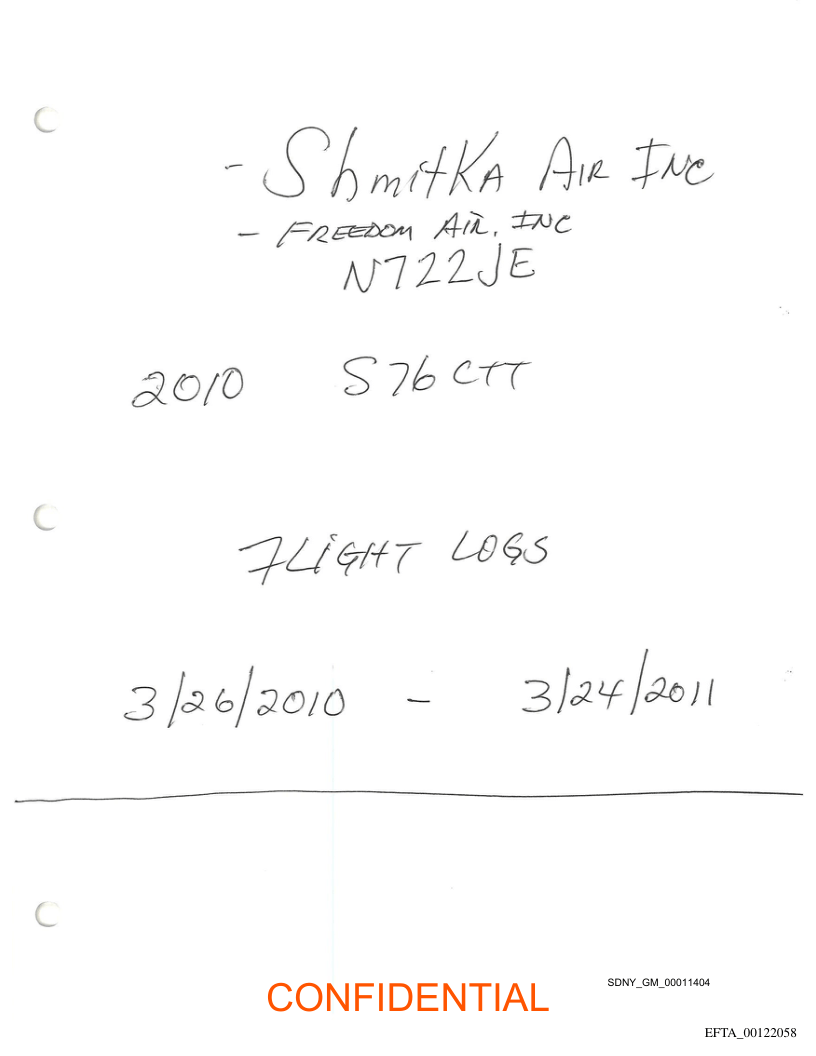 - Shmitka Air Inc
- FREEDOM AIR, INC
N722JE
2010 S76C++
FLIGHT LOGS
3/26/2010 - 3/24/2011
SDNY_GM_00011404
CONFIDENTIAL
EFTA_00122058